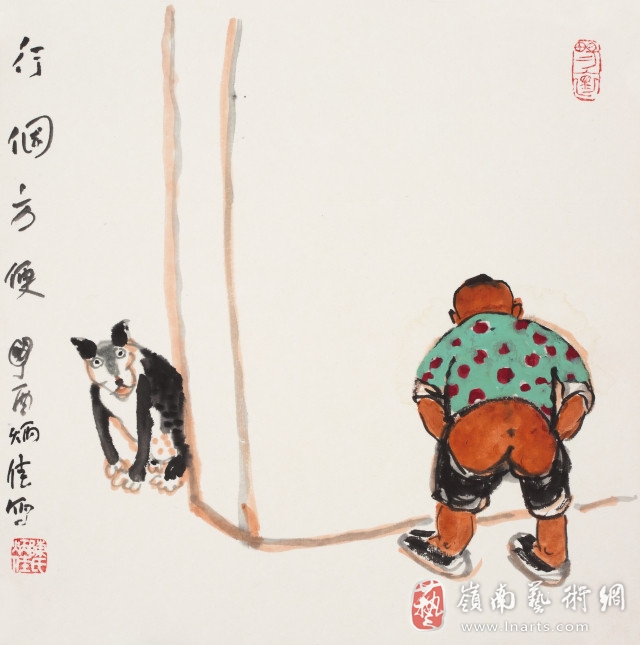 行個方便
酉炳佳寫
藝 嶺南藝術網
www.lnarts.com